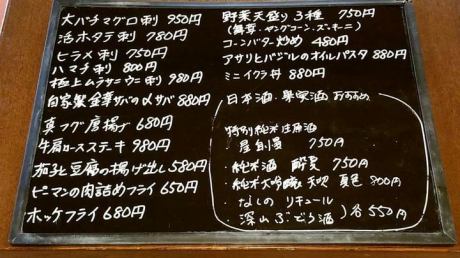 大バチマグロ刺 950円
活ホタテ刺 780円
ヒラメ刺 750円
ハマチ刺 800円
極上ムラサキウニ刺 980円
自家製金華サバの〆サバ 880円
真フグ唐揚げ 680円
牛肩ロースステーキ 980円
茄子と豆腐の揚げ出し 580円
ピーマンの肉詰めフライ 650円
ホッケフライ 680円
野菜天盛り3種 750円
ヤングコーン・ズッキーニ)
コーンバター炒め 480円
アサリとバジルのオイルパスタ 880円
ミニイクラ丼 880円
日本酒・果実酒 おすすめ
特別純米生原酒
屋創 750円
・純米酒 酔 750円
・純米大吟醸 天吹 夏色 800円
・なしの リキュール
・深山ぶどう酒 ) 各550円